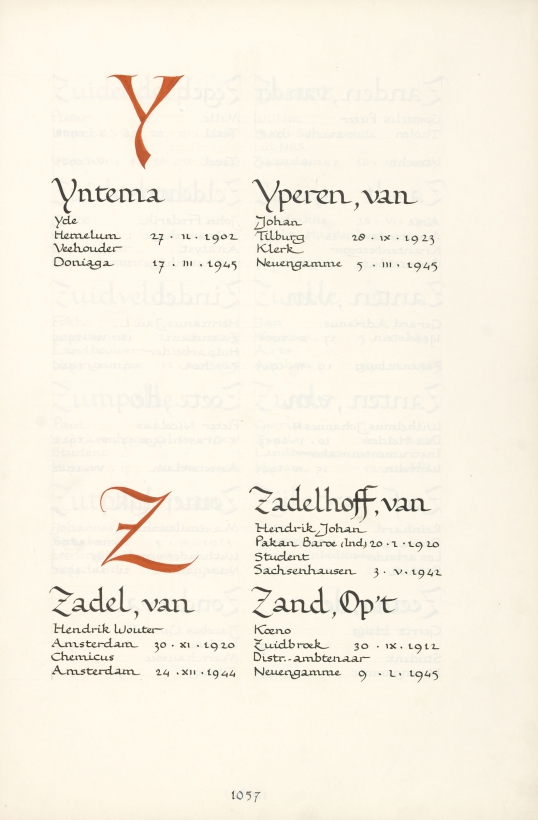 Y
Yntema
Yde
Hemelum 27 · II · 1902
Veehouder
Doniaga 17 · III · 1945
Yperen, van
Johan
Tilburg 28 · IX · 1923
Klerk
Neuengamme 5 · III · 1945
Z
Zadel, van
Hendrik Wouter
Amsterdam 30 · XI · 1920
Chemicus
Amsterdam 24 · XII · 1944
Zadelhoff, van
Hendrik Johan
Pakan Baroe (Ind) 20 · I · 1920
Student
Sachsenhausen 3 · V · 1942
Zand, Op't
Koeno
Zuidbroek 30 · IX · 1912
Distr.-ambtenaar
Neuengamme 9 · I · 1945
1057